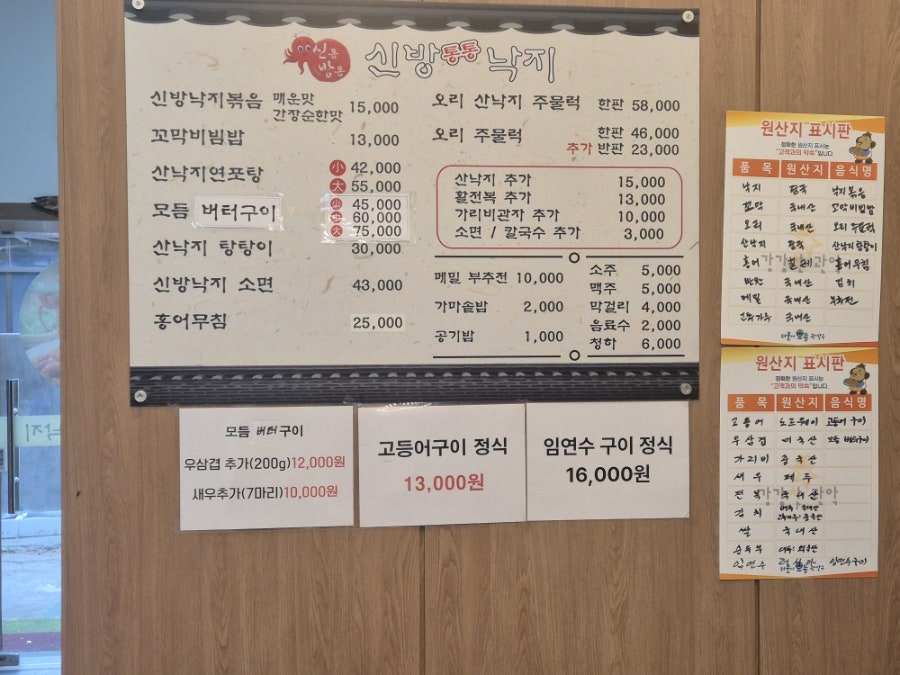 신통
방통
신방통통낙지
신방낙지볶음 매운맛 간장순한맛 15,000
꼬막비빔밥 13,000
산낙지연포탕 小 42,000
大 55,000
모듬 버터구이 小 45,000
中 60,000
大 75,000
산낙지 탕탕이 30,000
신방낙지 소면 43,000
홍어무침 25,000
오리 산낙지 주물럭 한판 58,000
오리 주물럭 한판 46,000
추가 반판 23,000
산낙지 추가 15,000
활전복 추가 13,000
가리비관자 추가 10,000
소면 / 칼국수 추가 3,000
메밀 부추전 10,000
가마솥밥 2,000
공기밥 1,000
소주 5,000
맥주 5,000
막걸리 4,000
음료수 2,000
청하 6,000
모듬 버터구이
우삼겹 추가(200g)12,000원
새우추가(7마리)10,000원
고등어구이 정식
13,000원
임연수 구이 정식
16,000원
원산지 표시판
정확한 원산지 표시는
"고객과의 약속"입니다.
품 목 원산지 음식명
낙지 중국 낙지볶음
꼬막 국내산 꼬막비빔밥
오리 국내산 오리 주물럭
산낙지 중국 산낙지탕탕이
홍어 칠레 홍어무침
반찬 국내산 김치
메밀 국내산 부추전
고춧가루 국내산
원산지 표시판
정확한 원산지 표시는
"고객과의 약속"입니다.
품 목 원산지 음식명
고등어 노르웨이 고등어 구이
우삼겹 미국산 모듬 버터구이
가리비 중국산
새우 페루
전복 국내산
김치
쌀 국내산
순두부 대두: 외국산
임연수 임연수구이